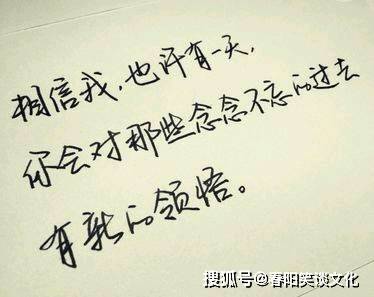 相信我,也许有一天,
你会对那些念念不忘的过去
有新的领悟。
搜狐号@春阳笑谈文化